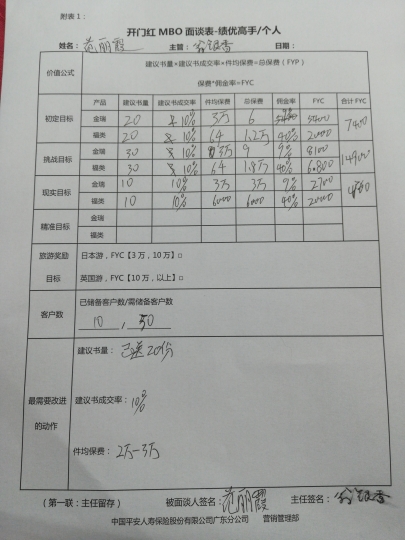 附表1：
开门红 MBO 面谈表-绩优高手/个人
姓名：范丽霞 主管： 日期：
价值公式 建议书量*建议书成交率*件均保费=总保费（FYP）
保费*佣金率=FYC
产品 建议书量 建议书成交率 件均保费 总保费 佣金率 FYC 合计 FYC
初定目标 金瑞 20 10% 3万 6 9% 5400 7400
福类 20 10% 64 1.2万 40% 2000
挑战目标 金瑞 30 10% 3万 9 9% 8100 14900
福类 30 10% 64 1.8万 40% 6800
现实目标 金瑞 10 10% 3万 3万 9% 2700
福类 10 10% 6000 6000 40% 2000
精准目标 金瑞
福类
旅游奖励 日本游，FYC【3 万，10 万】□
目标 英国游，FYC【10 万，以上】□
客户数 已储备客户数/需储备客户数
10 , 50
建议书量：已送20份
最需要改进 建议书成交率：10%
的动作
件均保费：2万-3万
（第一联：主任留存） 被面谈人签名：范丽霞 主任签名：
中国平安人寿保险股份有限公司广东分公司 营销管理部